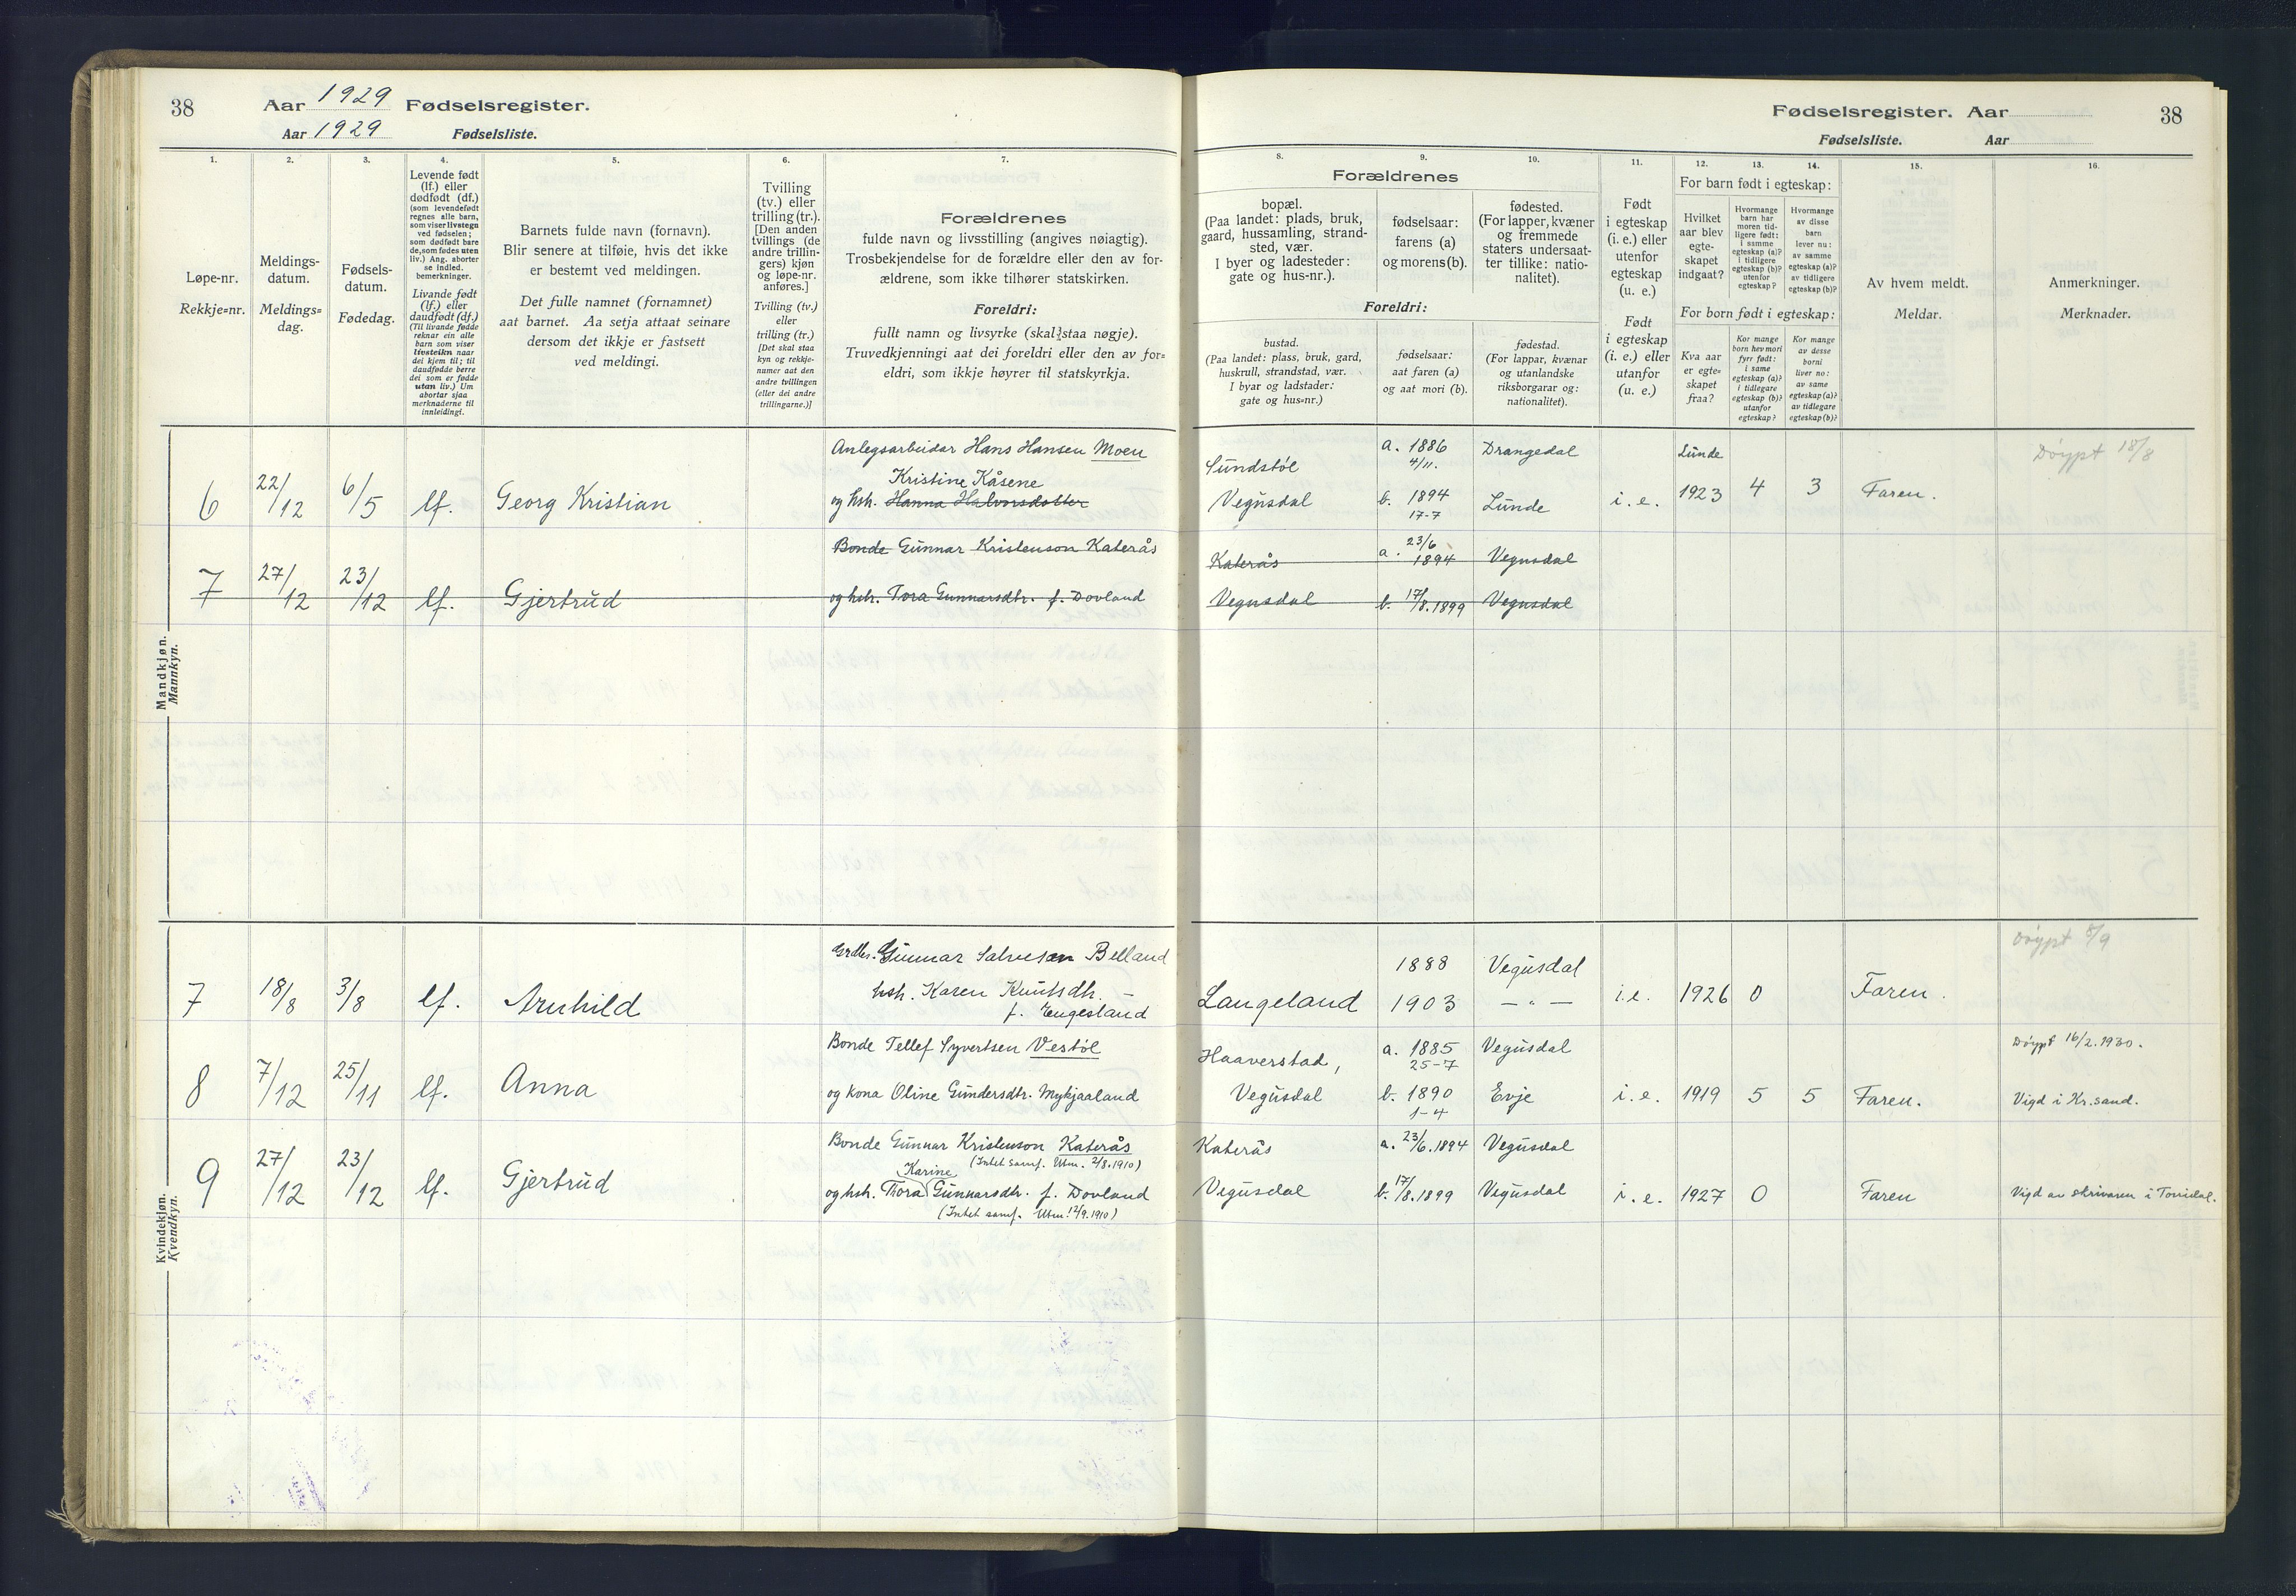 38
Aar 1929 Fødselsregister.
Aar 1929 Fødselsliste.
1.
Løpe-nr.
Rekkje=nr.
2.
Meldings-
datum.
Meldings=
dag.
3.
Fødsels-
datum.
Fødedag.
4.
Levende født
(lf.) eller
dødfødt (df.)
(som levendefødt
regnes alle barn,
som viser livstegn
ved fødselen;
som dødfødt bare
de, som fødes uten
liv.) Ang. aborter
se indled.
bemerkninger.
Livande født
(lf.) eller
daudfødt (df.)
(Til livande fødde
reknar ein alle
barn som viser
livsteikn naar
dei kjem til; til
daudfødde berre
dei som er fødde
utan liv.) Um
abortar sjaa
merknaderne til
innleidingi.
5.
Barnets fulde navn (fornavn).
Blir senere at tilføie, hvis det ikke
er bestemt ved meldingen.
Det fulle namnet (fornamnet)
aat barnet. Aa setja attaat seinare
dersom det ikkje er fastsett
ved meldingi.
6.
Tvilling
(tv.) eller
trilling (tr.).
[Den anden
tvillings (de
andre trillin-
gers) kjøn
og løpe-nr.
anføres.]
Tvilling (tv.)
eller
trilling (tr.)
[Det skal staa
kyn og rekkje-
numer aat den
andre tvillingen
(eller dei andre
trillingarne.)]
7.
Forældrenes
fulde navn og livsstilling (angives nøiagtig).
Trosbekjendelse for de forældre eller den av for-
ældrene, som ikke tilhører statskirken.
Foreldri:
fullt namn og livsyrke (skal staa nøgje).
Truvedkjenningi aat dei foreldri eller den av for=
eldri, som ikkje høyrer til statskyrkja.
Mandkjøn.
Mannkyn.
Anlegsarbeider Hans Hansen Moen
Kristine Kåsene
6 22/12 6/5 lf. Georg Kristian og hsh. Hanna Halvorsdotter
Bonde Gunnar Kristenson Katerås
7 27/12 23/12 lf. Gjertrud og hsh. Tora Gunnarsdtr. f. Dovland
Kvindekjøn.
Kvendkyn.
Grdbr. Gunnar Salvesen Belland
7 18/8 3/8 lf. Arnhild hsh. Karen Knutsdtr. –
f. Engesland
Bonde Tellef Syvertsen Vestøl
8 7/12 25/11 lf. Anna og kona Oline Gundersdtr. Mykjaaland
Bonde Gunnar Kristenson Katerås
(Intet samf. Utm. 2/8.1910)
Karine
9 27/12 23/12 lf. Gjertrud og hsh. Thora Gunnarsdtr. f. Dovland
(Intet samf. Utm. 12/9.1910)
Fødselsregister. Aar
38
Fødselsliste. Aar
Forældrenes
8.
bopæl.
(Paa landet: plads, bruk,
gaard, hussamling, strand-
sted, vær.
I byer og ladesteder:
gate og hus-nr.).
9.
fødselsaar:
farens (a)
og morens (b).
10.
fødested.
(For lapper, kvæner
og fremmede
staters undersaat-
ter tillike: natio-
nalitet).
Foreldri:
bustad.
(Paa landet: plass, bruk, gard,
huskrull, strandstad, vær.
I byar og ladstader:
gate og hus=nr.)
fødselsaar:
aat faren (a)
og aat mori (b).
fødestad.
(For lappar, kvænar
og utanlandske
riksborgarar og:
nationalitet).
11.
Født
i egteskap
(i. e.) eller
utenfor
egteskap
(u. e.)
Født
i egteskap
(i. e.) eller
utanfor
(u. e.)
12. 13. 14.
For barn født i egteskap:
Hvilket
aar blev
egte-
skapet
indgaat?
Hvormange
barn har
moren tid-
ligere født:
i samme
egteskap (a)?
i tidligere
egteskap (b)?
utenfor
egteskap?
Hvormange
av disse
barn
lever nu:
av samme
egteskap (a)?
av tidligere
egteskap (b)?
For born født i egteskap:
Kva aar
er egte=
skapet
fraa?
Kor mange
born hev mori
fyrr født:
i same
egteskap (a)?
i tidlegare
egteskap (b)?
utanfor
egteskap?
Kor mange
av desse
borni
liver no:
av same
egteskap (a)?
av tidlegare
egteskap (b)?
15.
Av hvem meldt.
Meldar.
16.
Anmerkninger.
Merknader.
Sundstøl a. 1886 4/11. Drangedal Lunde Døypt 18/8
Vegusdal b. 1894 17-7 Lunde i. e. 1923 4 3 Faren.
Katerås a. 23/6 1894 Vegusdal
Vegusdal b. 17/8. 1899 Vegusdal
1888 Vegusdal Døypt 8/9
Langeland 1903 — " — i. e. 1926 0 Faren.
Haaverstad, a. 1885 25-7 Vegusdal Døypt 16/2. 1930.
Vegusdal b. 1890 1-4 Evje i. e. 1919 5 5 Faren. Vigd i Kr.sand.
Katerås a. 23/6. 1894 Vegusdal
Vegusdal b. 17/8. 1899 Vegusdal i. e. 1927 0 Faren Vigd av skrivaren i Torridal.